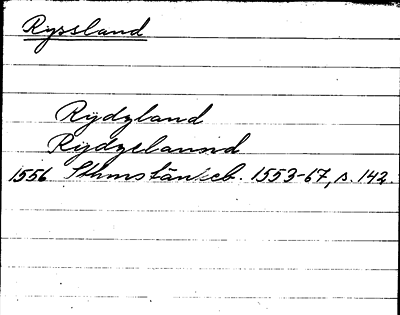 Ryssland
Rydzland
Rydzelannd
1556 Sthmstänkeb. 1553-67, s. 142.